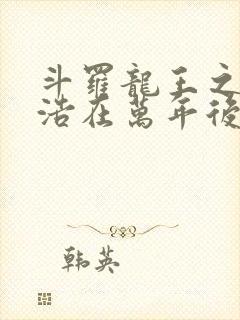 斗羅龍王之
浩在萬年後
韩英